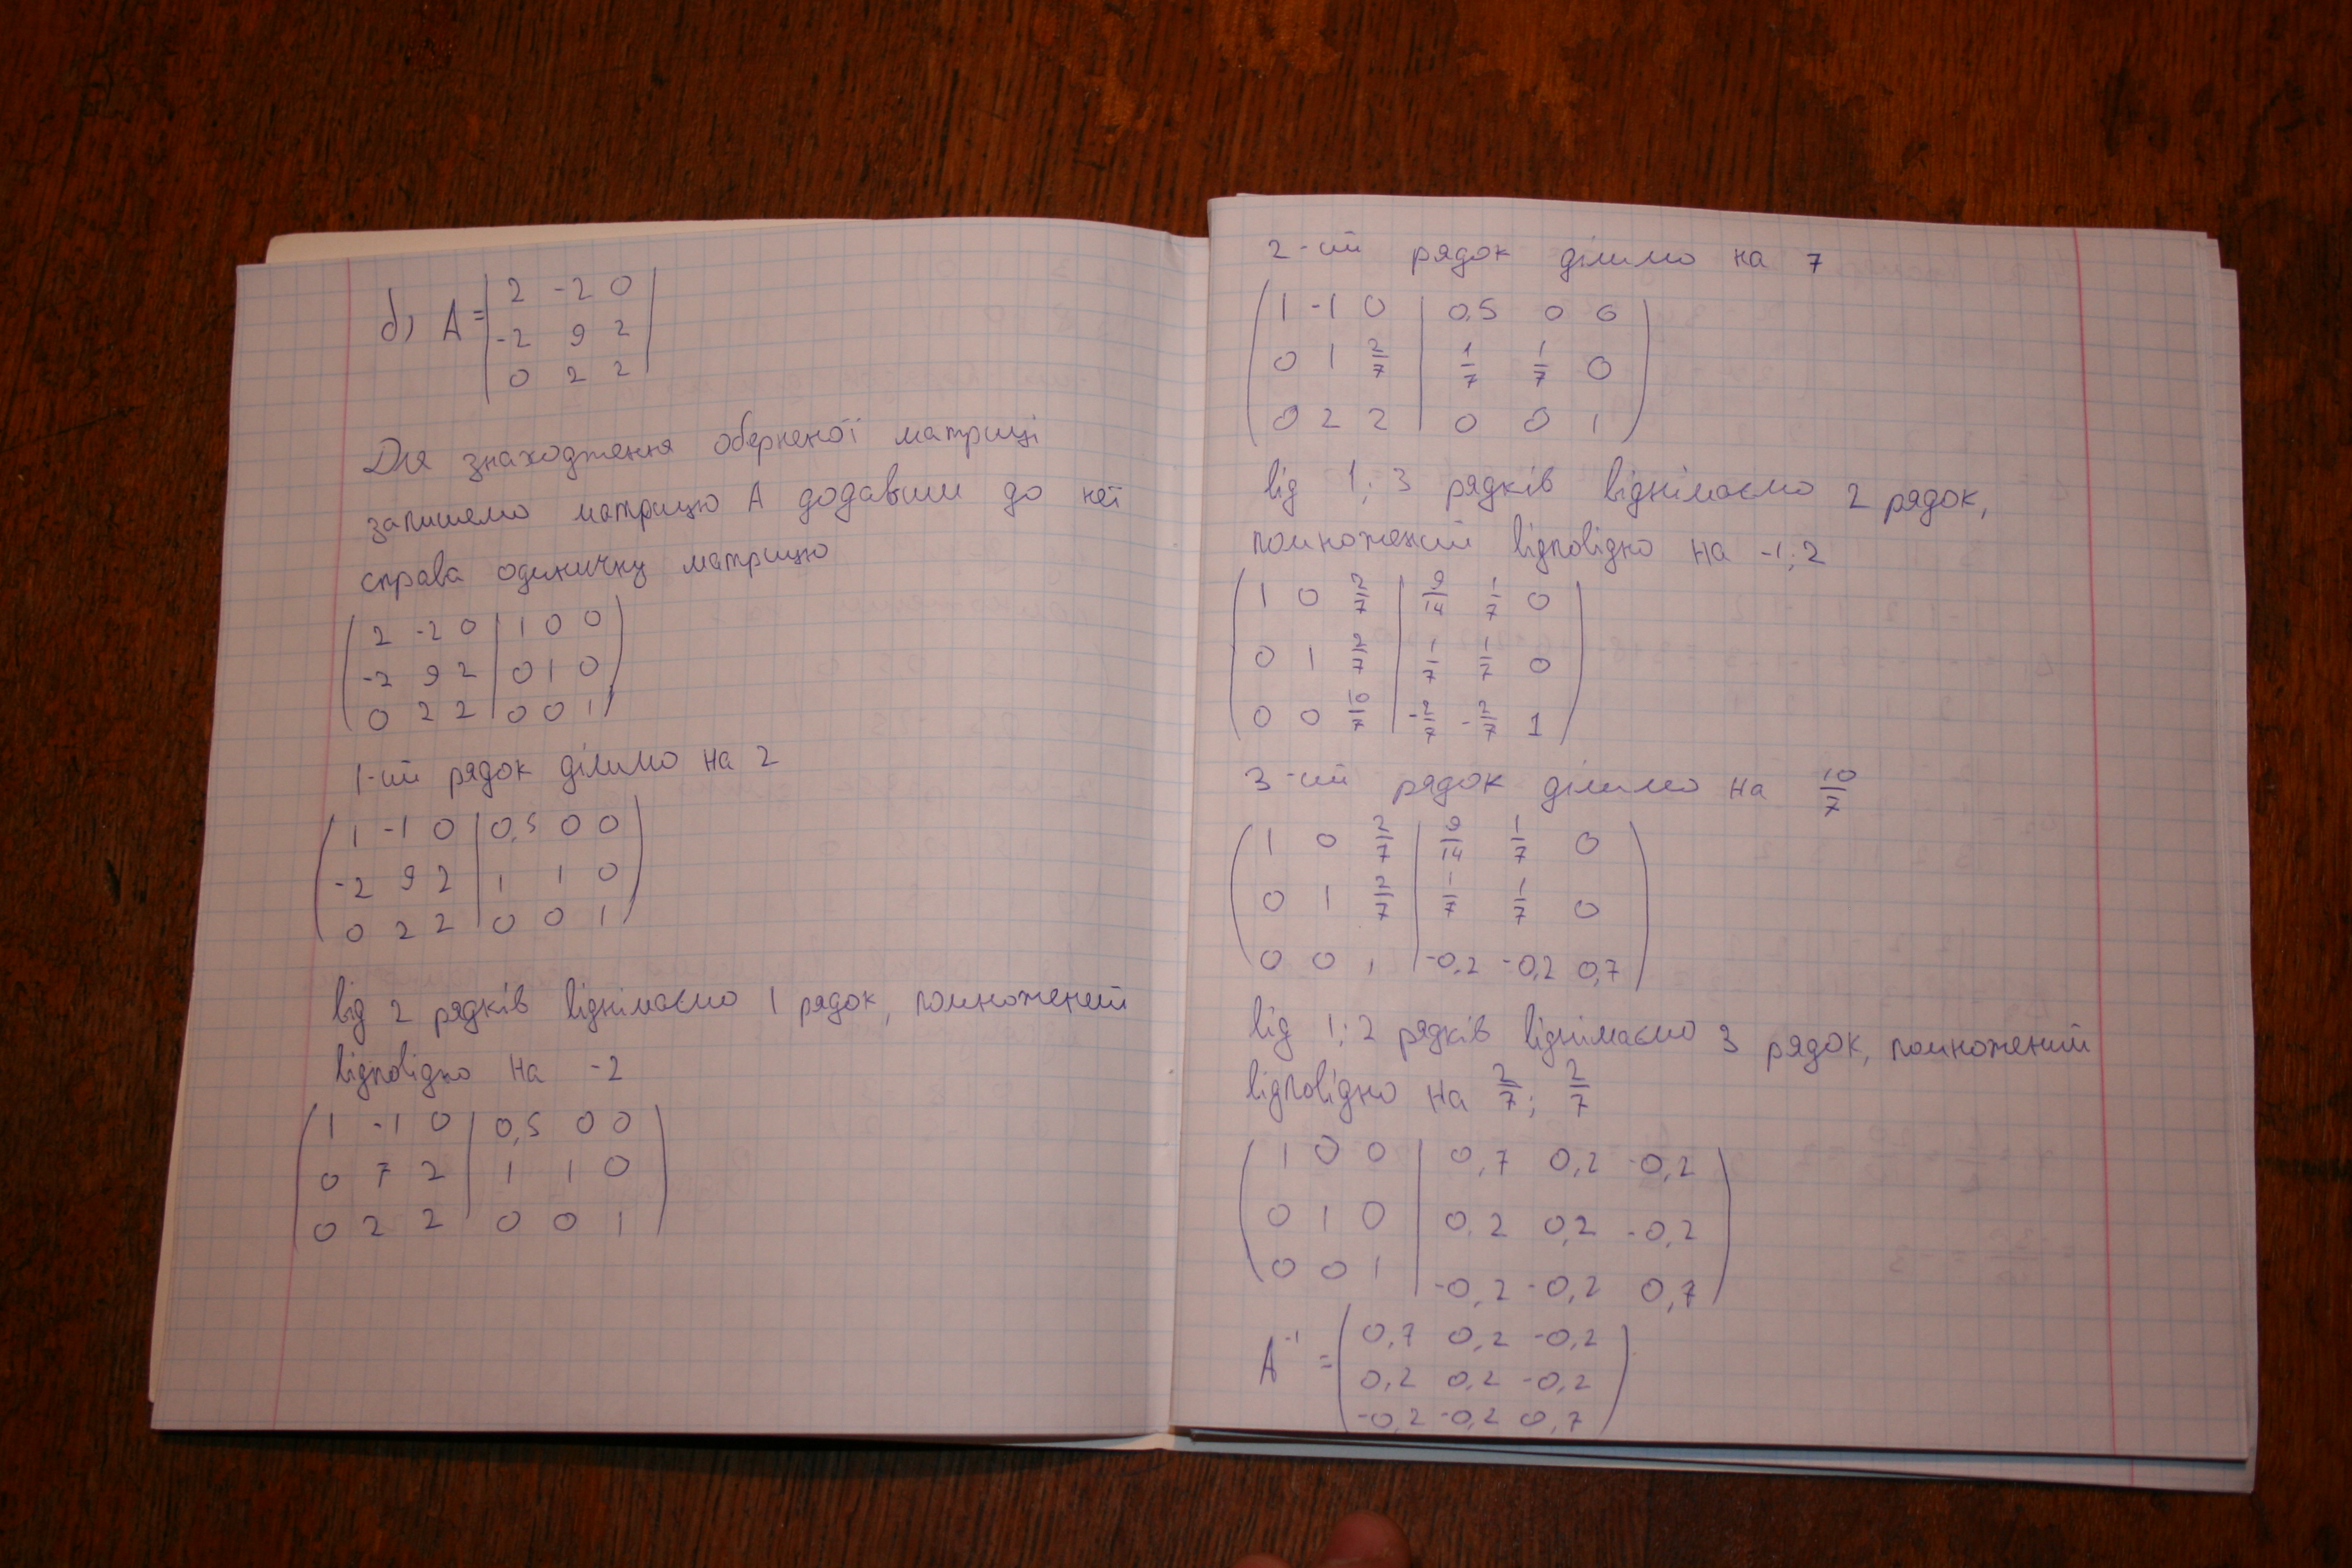 б) A = | 2 -2 0 |
| -2 9 2 |
| 0 2 2 |
Для знаходження оберненої матриці
запишемо матрицю А додавши до неї
справа одиничну матрицю
( 2 -2 0 | 1 0 0 )
( -2 9 2 | 0 1 0 )
( 0 2 2 | 0 0 1 )
1-ий рядок ділимо на 2
( 1 -1 0 | 0,5 0 0 )
( -2 9 2 | 1 1 0 )
( 0 2 2 | 0 0 1 )
від 2 рядків віднімаємо 1 рядок, помножений
відповідно на -2
( 1 -1 0 | 0,5 0 0 )
( 0 7 2 | 1 1 0 )
( 0 2 2 | 0 0 1 )
2-ий рядок ділимо на 7
( 1 -1 0 | 0,5 0 0 )
( 0 1 2/7 | 1/7 1/7 0 )
( 0 2 2 | 0 0 1 )
від 1; 3 рядків віднімаємо 2 рядок,
помножений відповідно на -1; 2
( 1 0 2/7 | 9/14 1/7 0 )
( 0 1 2/7 | 1/7 1/7 0 )
( 0 0 10/7 | -2/7 -2/7 1 )
3-ий рядок ділимо на 10/7
( 1 0 2/7 | 9/14 1/7 0 )
( 0 1 2/7 | 1/7 1/7 0 )
( 0 0 1 | -0,2 -0,2 0,7 )
від 1; 2 рядків віднімаємо 3 рядок, помножений
відповідно на 2/7; 2/7
( 1 0 0 | 0,7 0,2 -0,2 )
( 0 1 0 | 0,2 0,2 -0,2 )
( 0 0 1 | -0,2 -0,2 0,7 )
A⁻¹ = ( 0,7 0,2 -0,2 )
( 0,2 0,2 -0,2 )
( -0,2 -0,2 0,7 )